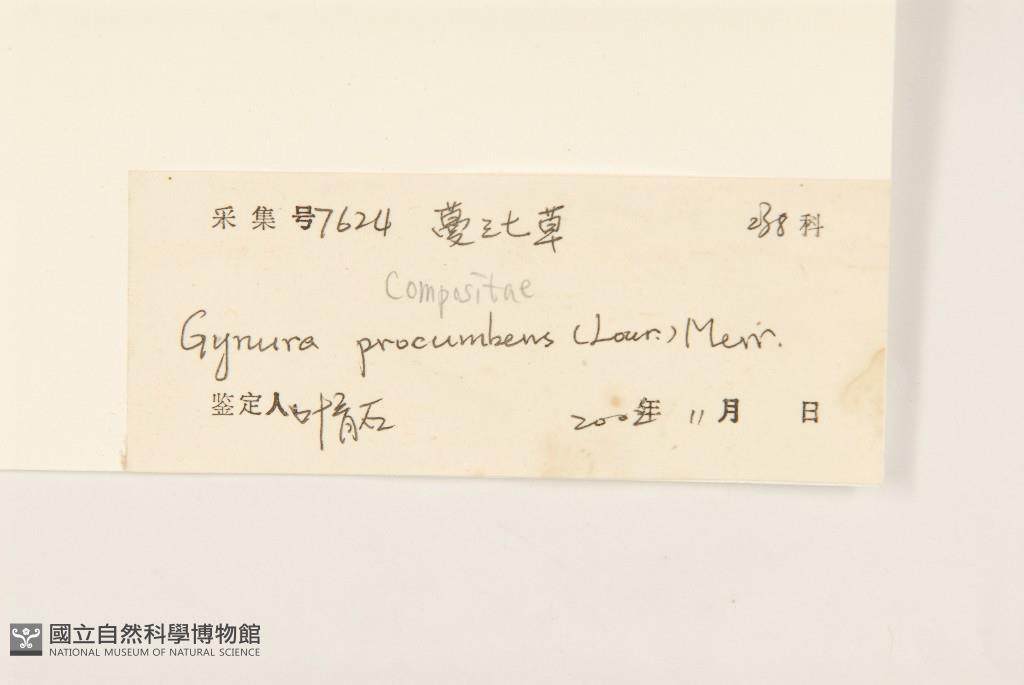 采集号7624 蔓三七草 238科
Compositae
Gynura procumbens (Lour.) Merr.
鉴定人叶育石 2002年 11月 日
國立自然科學博物館
NATIONAL MUSEUM OF NATURAL SCIENCE